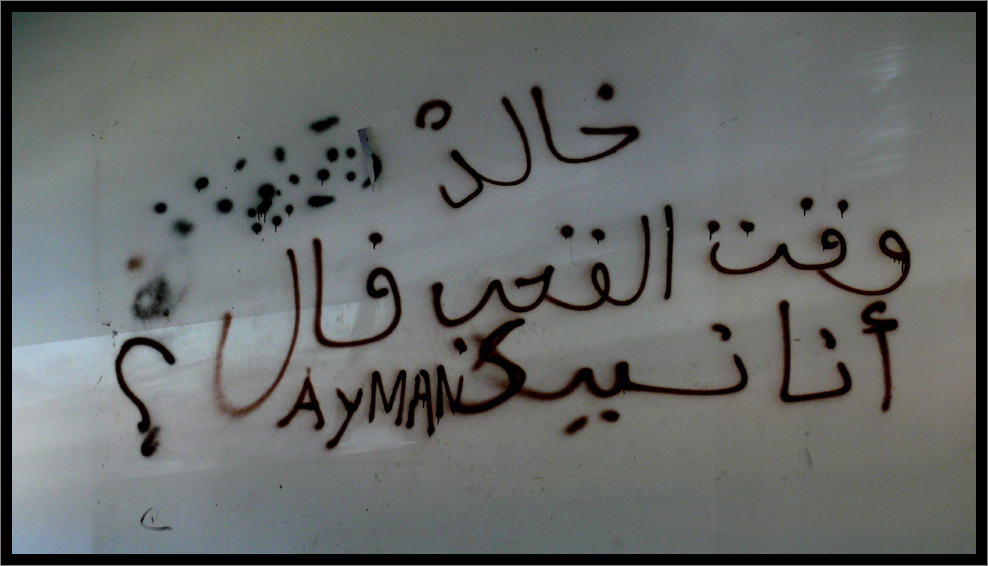 خالد
وقت القحب فال
أنا AyMAN ؟